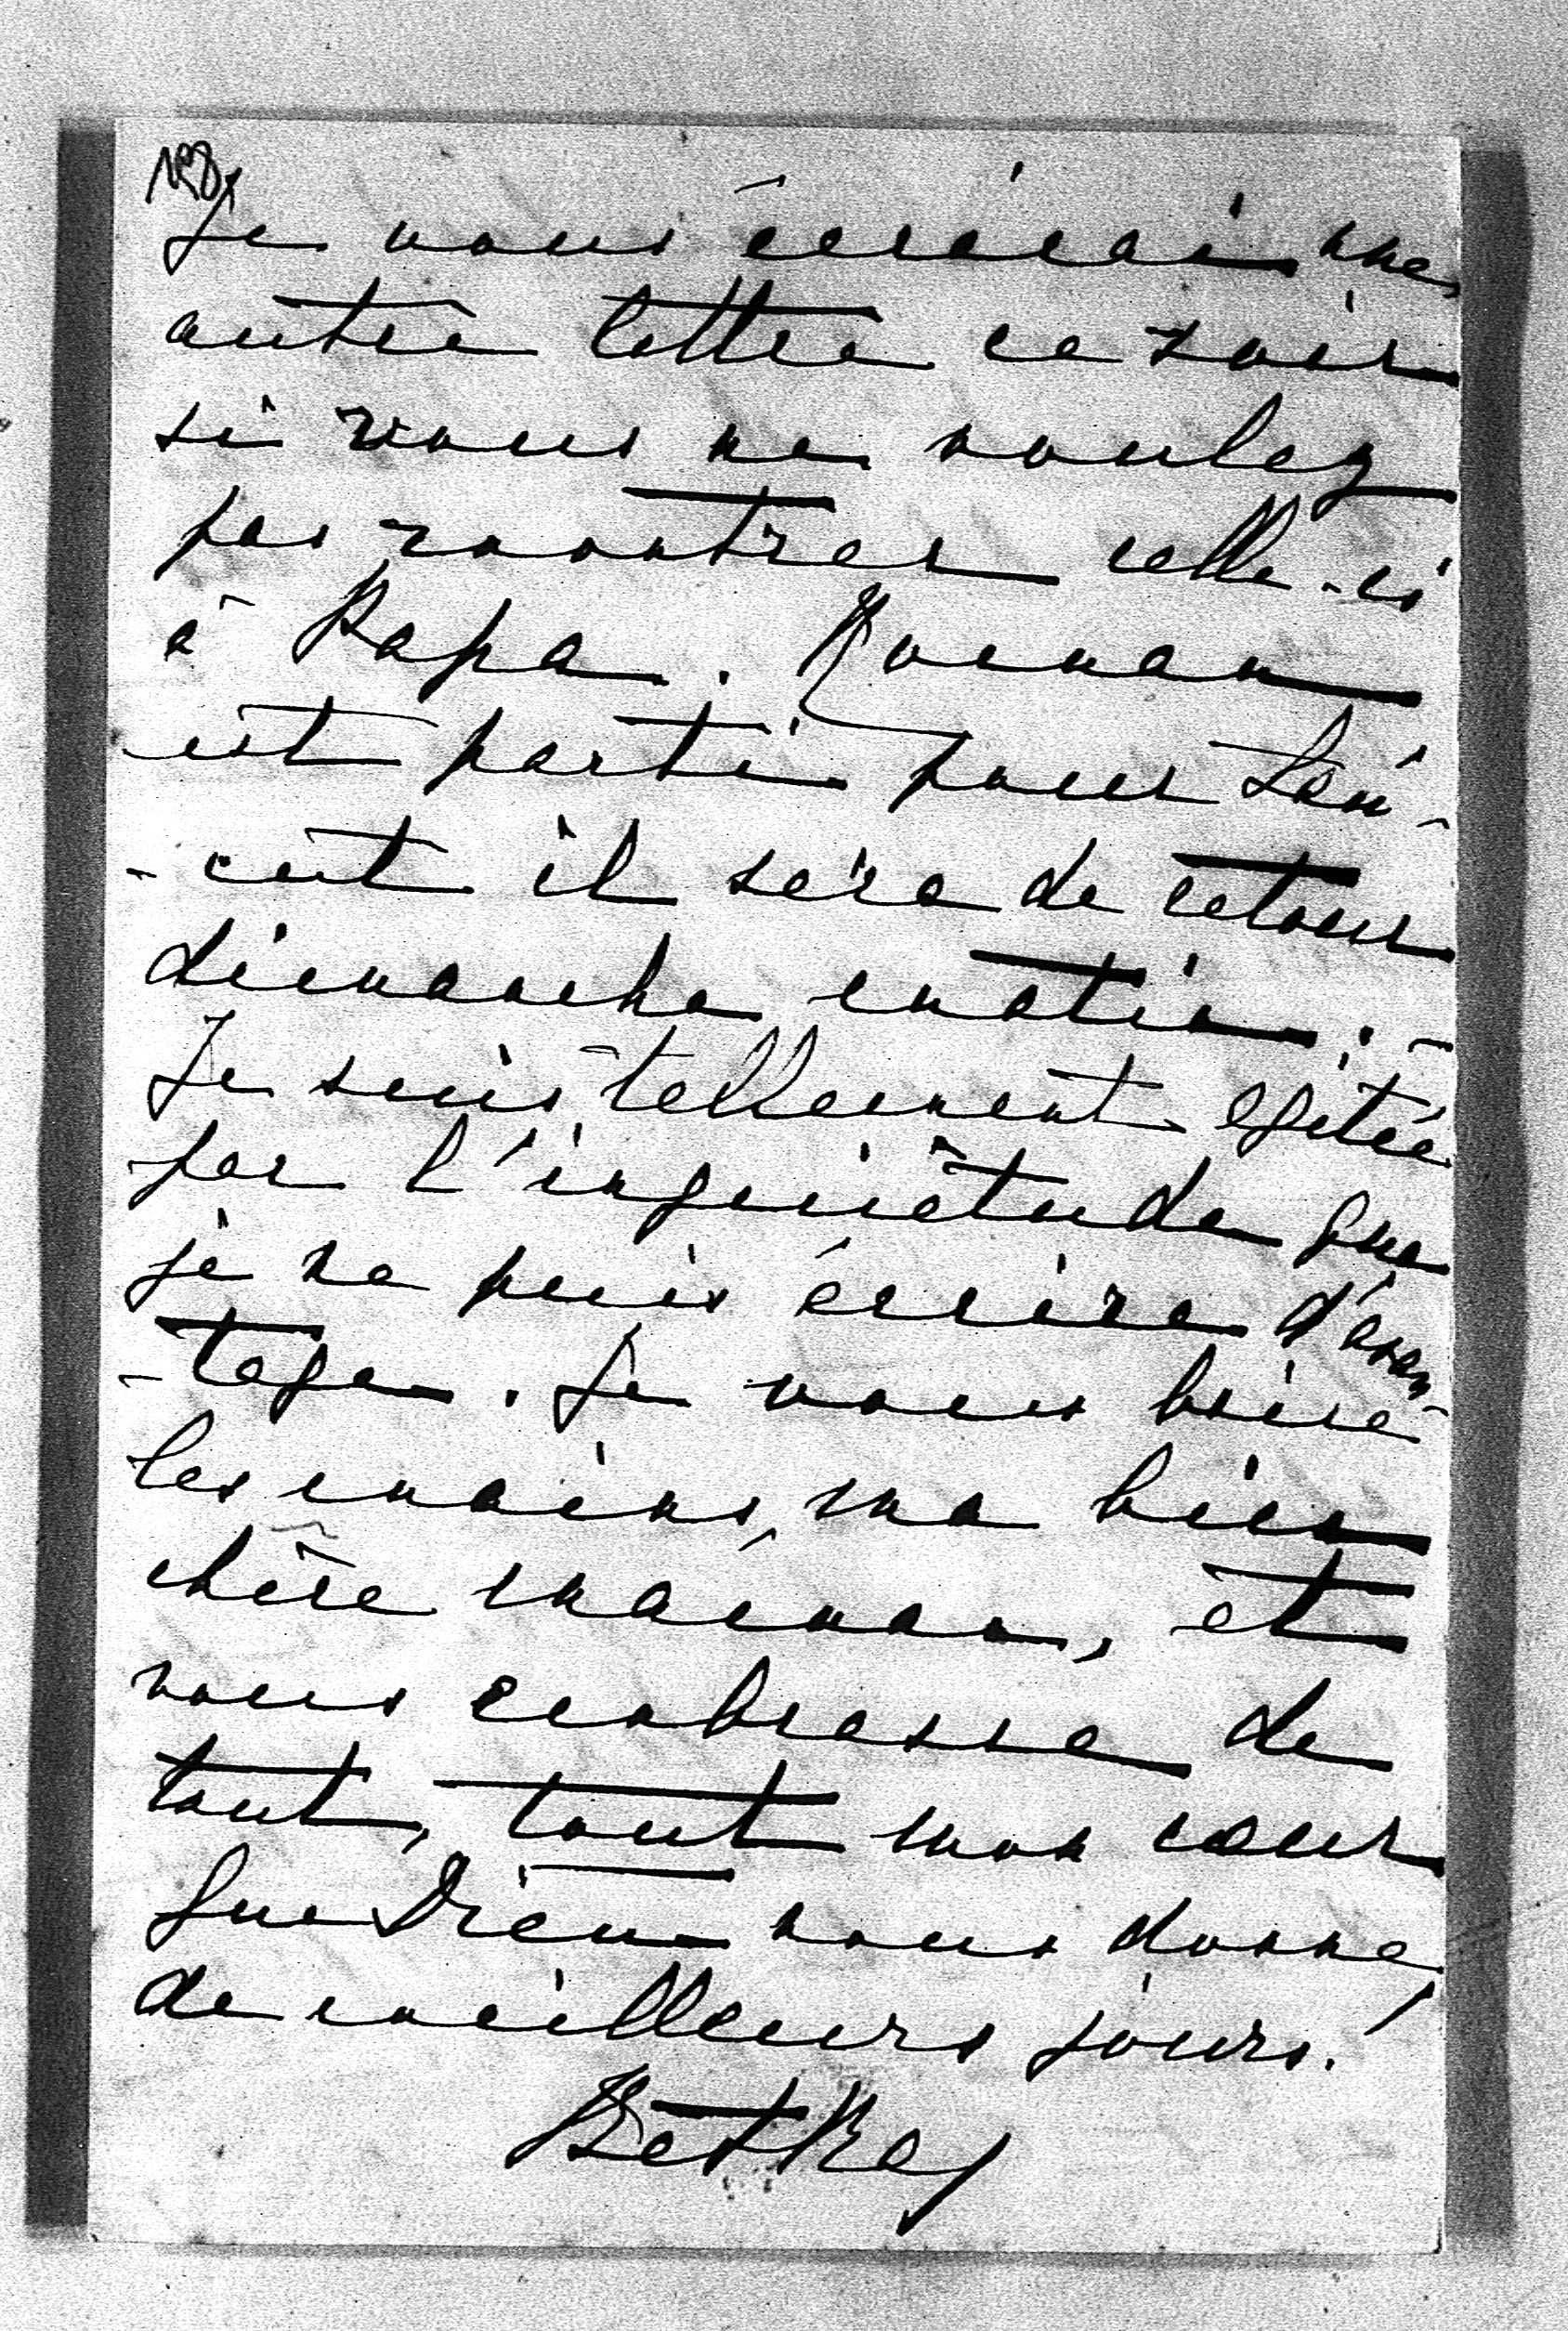 Je vous écrirai une
autre lettre ce soir
si vous ne voulez
pas montrer celle-ci
à Papa. Roman
est parti pour Łań-
-cut il sera de retour
dimanche matin. -
Je suis tellement agitée
par l'inquiétude que
je ne puis écrire d'avan-
-tage. Je vous baise
les mains, ma bien
chère maman, et
vous embrasse de
tout, tout mon cœur
Que Dieu nous donne
de meilleurs jours!
Betka